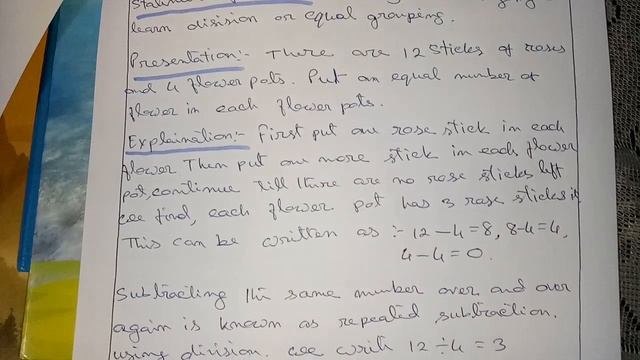 learn division or equal grouping.
Presentation:- There are 12 sticks of roses
and 4 flower pots. Put an equal number of
flower in each flower pots.
Explaination:- First put one rose stick in each
flower Then put one more stick in each flower
pot, continue till there are no rose sticks left
we find, each flower pot has 3 rose sticks
This can be written as :- 12-4=8, 8-4=4,
4-4=0.
Subtracting the same number over and over
again is known as repeated subtraction.
using division. we write 12÷4=3